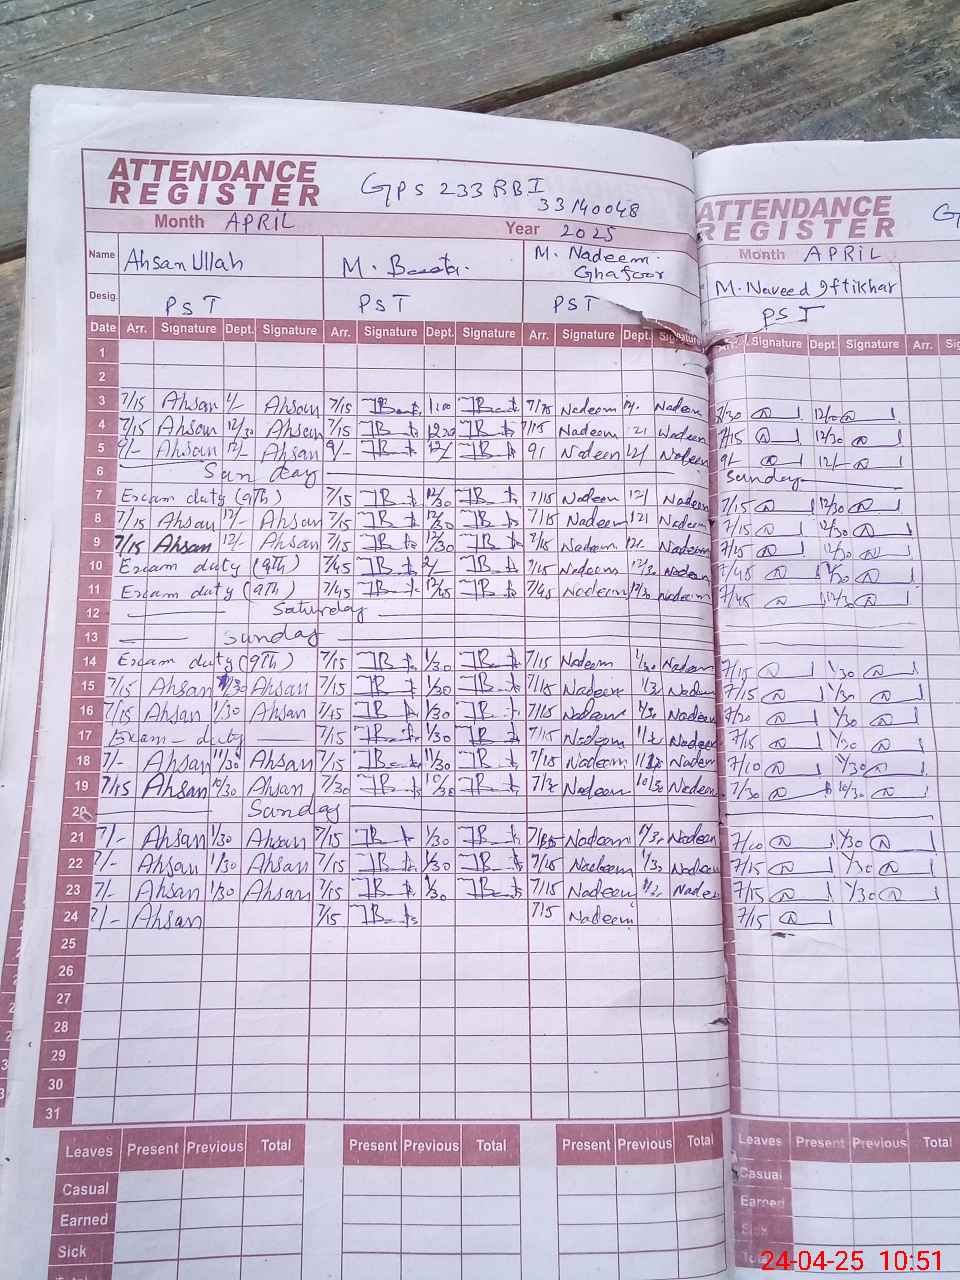 ATTENDANCE REGISTER GPS 233 RB I
33140048
Month APRIL Year 2025
Name Ahsan Ullah M. M. Nadeem Ghafoor
Desig. PST PST PST
Date Arr. Signature Dept. Signature Arr. Signature Dept. Signature Arr. Signature Dept. Signature
1
2
3 7/15 Ahsan Ahsan 7/15 1:00 Nadeem Nadeem
4 7/15 Ahsan 12/30 Ahsan 7/15 7/15 Nadeem Nadeem
5 9/- Ahsan 12/- Ahsan 9/- 12/ 9/ Nadeem 12/ Nadeem
6 Sunday
7 Exam duty (9Th) 7/15 12/30 7/15 Nadeem 12/ Nadeem
8 7/15 Ahsan 12/- Ahsan 7/15 12/30 7/15 Nadeem Nadeem
9 7/15 Ahsan 12/- Ahsan 7/15 12/30 7/15 Nadeem 12/- Nadeem
10 Exam duty (9Th) 7/45 2/ Nadeem 12/30 Nadeem
11 Exam duty (9Th) 7/45 7/45 Nadeem 12/30 Nadeem
12 Saturday
13 Sunday
14 Exam duty (9Th) 7/15 1/30 7/15 Nadeem 1/30 Nadeem
15 7/15 Ahsan 1/30 Ahsan 7/15 1/30 7/15 Nadeem Nadeem
16 7/15 Ahsan 1/30 Ahsan 1/30 7/15 Nadeem 1/30 Nadeem
17 Exam duty 7/15 1/30 7/15 Nadeem Nadeem
18 7/- Ahsan 11/30 Ahsan 7/15 11/30 7/15 Nadeem Nadeem
19 7/15 Ahsan 10/30 Ahsan 7/30 10/30 Nadeem 10/30 Nadeem
20 Sunday
21 7/- Ahsan 1/30 Ahsan 7/15 1/30 Nadeem 1/30 Nadeem
22 7/- Ahsan 1/30 Ahsan 7/15 1/30 7/15 Nadeem 1/30 Nadeem
23 7/- Ahsan 1/30 Ahsan 7/15 1/30 7/15 Nadeem Nadeem
24 7/- Ahsan 7/15 7/15 Nadeem
25
26
27
28
29
30
31
Leaves Present Previous Total Present Previous Total Present Previous Total
Casual
Earned
Sick
ATTENDANCE REGISTER
Month APRIL
M. Naveed Iftikhar
PST
Arr. Signature Dept. Signature Arr.
7/30
7/15 12/30
9/- 12/-
Sunday
7/15 12/30
7/15 12/30
7/15 12/30
7/45
7/45 12/30
7/15 1/30
7/15 1/30
7/20 1/30
7/15 1/30
7/10
7/30 10/30
7/10 1/30
7/15 1/30
7/15 1/30
7/15
Leaves Present Previous Total
Casual
Earned
Sick
24-04-25 10:51